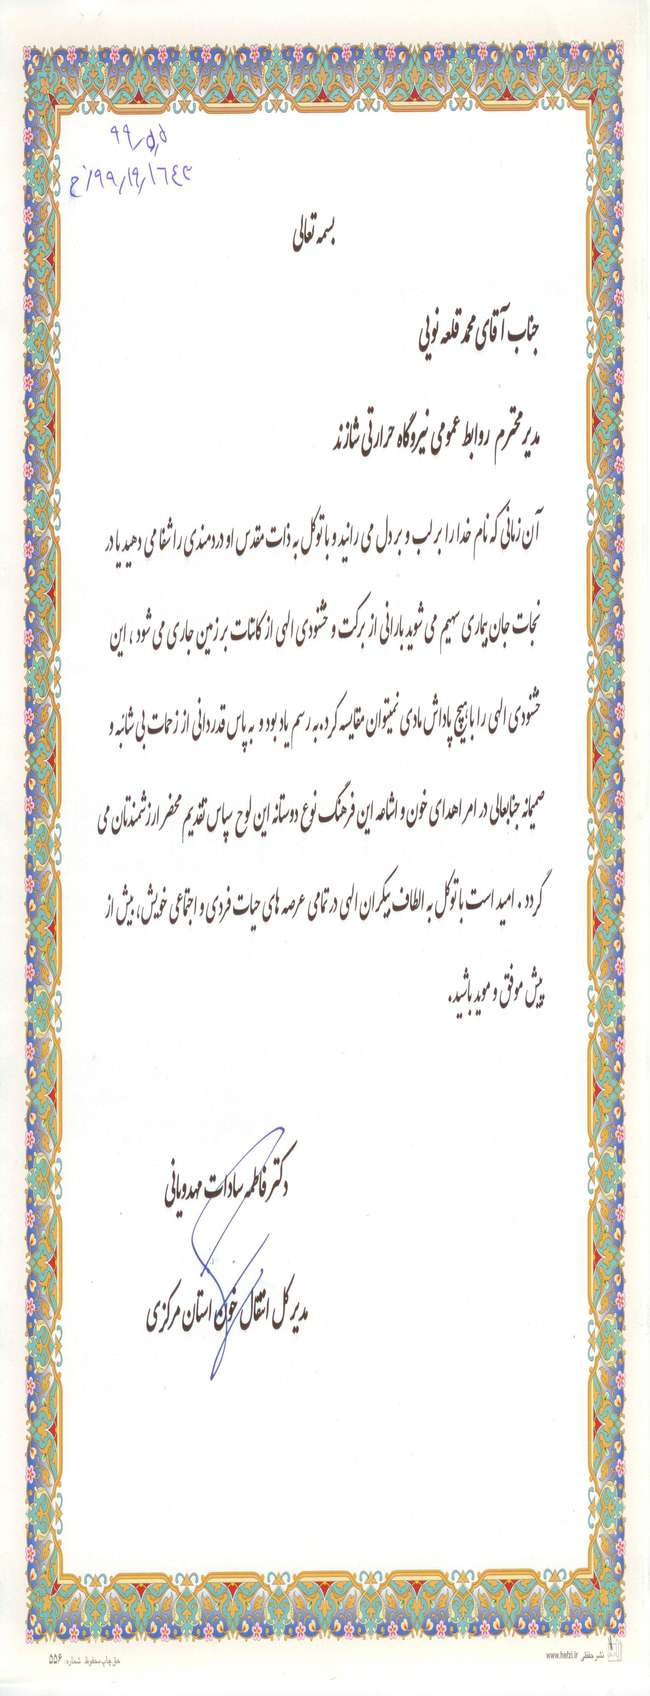 ۹۹/۵/۵
۹۹/۱۹/۱۶۴۳/خ
بسمه تعالی
جناب آقای محمد قلعه نویی
مدیر محترم روابط عمومی نیروگاه حرارتی شازند
آن زمانی که نام خدا را بر لب و بر دل می رانید و با توکل به ذات مقدس او دردمندی را شفا می دهید یا در
نجات جان بیماری سهیم می شوید بارانی از برکت و خشنودی الهی از کائنات بر زمین جاری می شود ، این
خشنودی الهی را با هیچ پاداش مادی نمیتوان مقایسه کرد.به رسم یاد بود و به پاس قدردانی از زحمات بی شائبه و
صمیمانه جنابعالی در امر اهدای خون و اشاعه این فرهنگ نوع دوستانه این لوح سپاس تقدیم محضر ارزشمندتان می
گردد . امید است با توکل به الطاف بیکران الهی در تمامی عرصه های حیات فردی و اجتماعی خویش، بیش از
پیش موفق و موید باشید.
دکتر فاطمه سادات مهدویانی
مدیر کل انتقال خون استان مرکزی
حق چاپ محفوظ شماره: ۵۵۶
نشر حفظی www.hefzi.ir